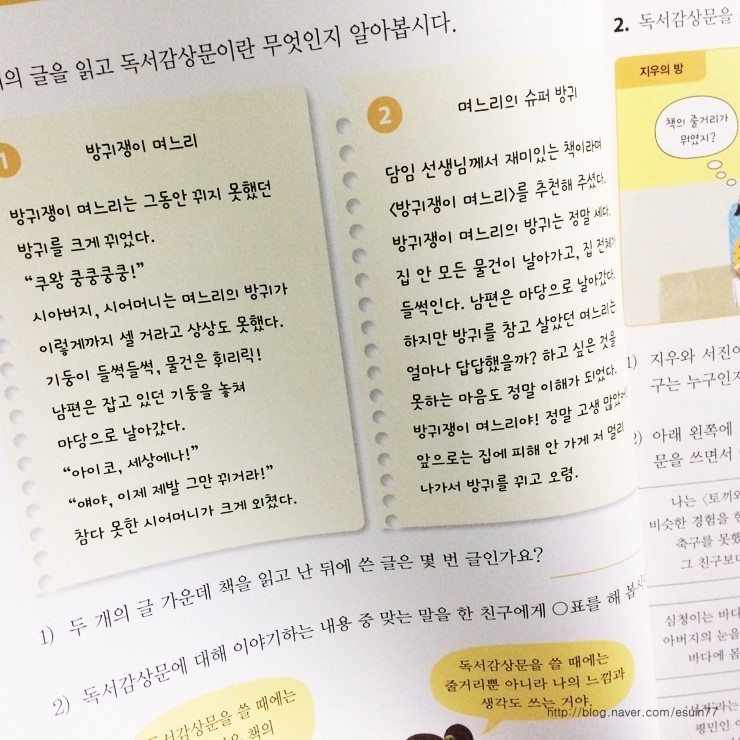 글을 읽고 독서감상문이란 무엇인지 알아봅시다.
1
방귀쟁이 며느리
방귀쟁이 며느리는 그동안 뀌지 못했던
방귀를 크게 뀌었다.
“쿠왕 쿵쿵쿵쿵!”
시아버지, 시어머니는 며느리의 방귀가
이렇게까지 셀 거라고 상상도 못했다.
기둥이 들썩들썩, 물건은 휘리릭!
남편은 잡고 있던 기둥을 놓쳐
마당으로 날아갔다.
“아이코, 세상에나!”
“얘야, 이제 제발 그만 뀌거라!”
참다 못한 시어머니가 크게 외쳤다.
2
며느리의 슈퍼 방귀
담임 선생님께서 재미있는 책이라며
<방귀쟁이 며느리>를 추천해 주셨다.
방귀쟁이 며느리의 방귀는 정말 세다.
집 안 모든 물건이 날아가고, 집 전체가
들썩인다. 남편은 마당으로 날아갔다.
하지만 방귀를 참고 살았던 며느리는
얼마나 답답했을까? 하고 싶은 것을
못하는 마음도 정말 이해가 되었다.
방귀쟁이 며느리야! 정말 고생 많았어!
앞으로는 집에 피해 안 가게 저 멀리
나가서 방귀를 뀌고 오렴.
1) 두 개의 글 가운데 책을 읽고 난 뒤에 쓴 글은 몇 번 글인가요?
2) 독서감상문에 대해 이야기하는 내용 중 맞는 말을 한 친구에게 ○표를 해
독서감상문을 쓸 때에는
책의
독서감상문을 쓸 때에는
줄거리뿐 아니라 나의 느낌과
생각도 쓰는 거야.
2. 독서감상문을
지우의 방
책의 줄거리가
뭐였지?
1) 지우와 서진이
구는 누구인지
2) 아래 왼쪽에
문을 쓰면서
나는 <토끼와
비슷한 경험을
축구를 못했
그 친구보다
심청이는 바다
아버지의 눈을
바다에 몸
평민인
http://blog.naver.com/esuin77